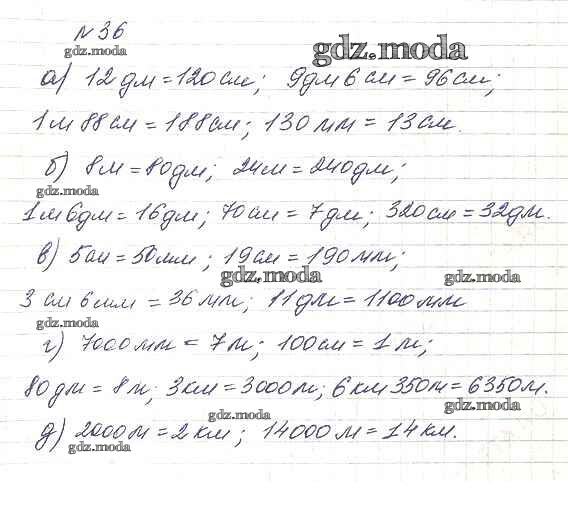 №36
gdz.moda
gdz.moda
а) 12 дм = 120 см; 9 дм 6 см = 96 см;
1 м 88 см = 188 см; 130 мм = 13 см.
б) 8 м = 80 дм; 24 м = 240 дм;
gdz.moda
1 м 6 дм = 16 дм; 70 см = 7 дм; 320 см = 32 дм.
в) 5 см = 50 мм; 19 см = 190 мм;
gdz.moda
gdz.moda
3 см 6 мм = 36 мм; 11 дм = 1100 мм
gdz.moda
г) 7000 мм = 7 м; 100 см = 1 м;
80 дм = 8 м; 3 км = 3000 м; 6 км 350 м = 6350 м.
gdz.moda
gdz.moda
д) 2000 м = 2 км; 14000 м = 14 км.
gdz.moda